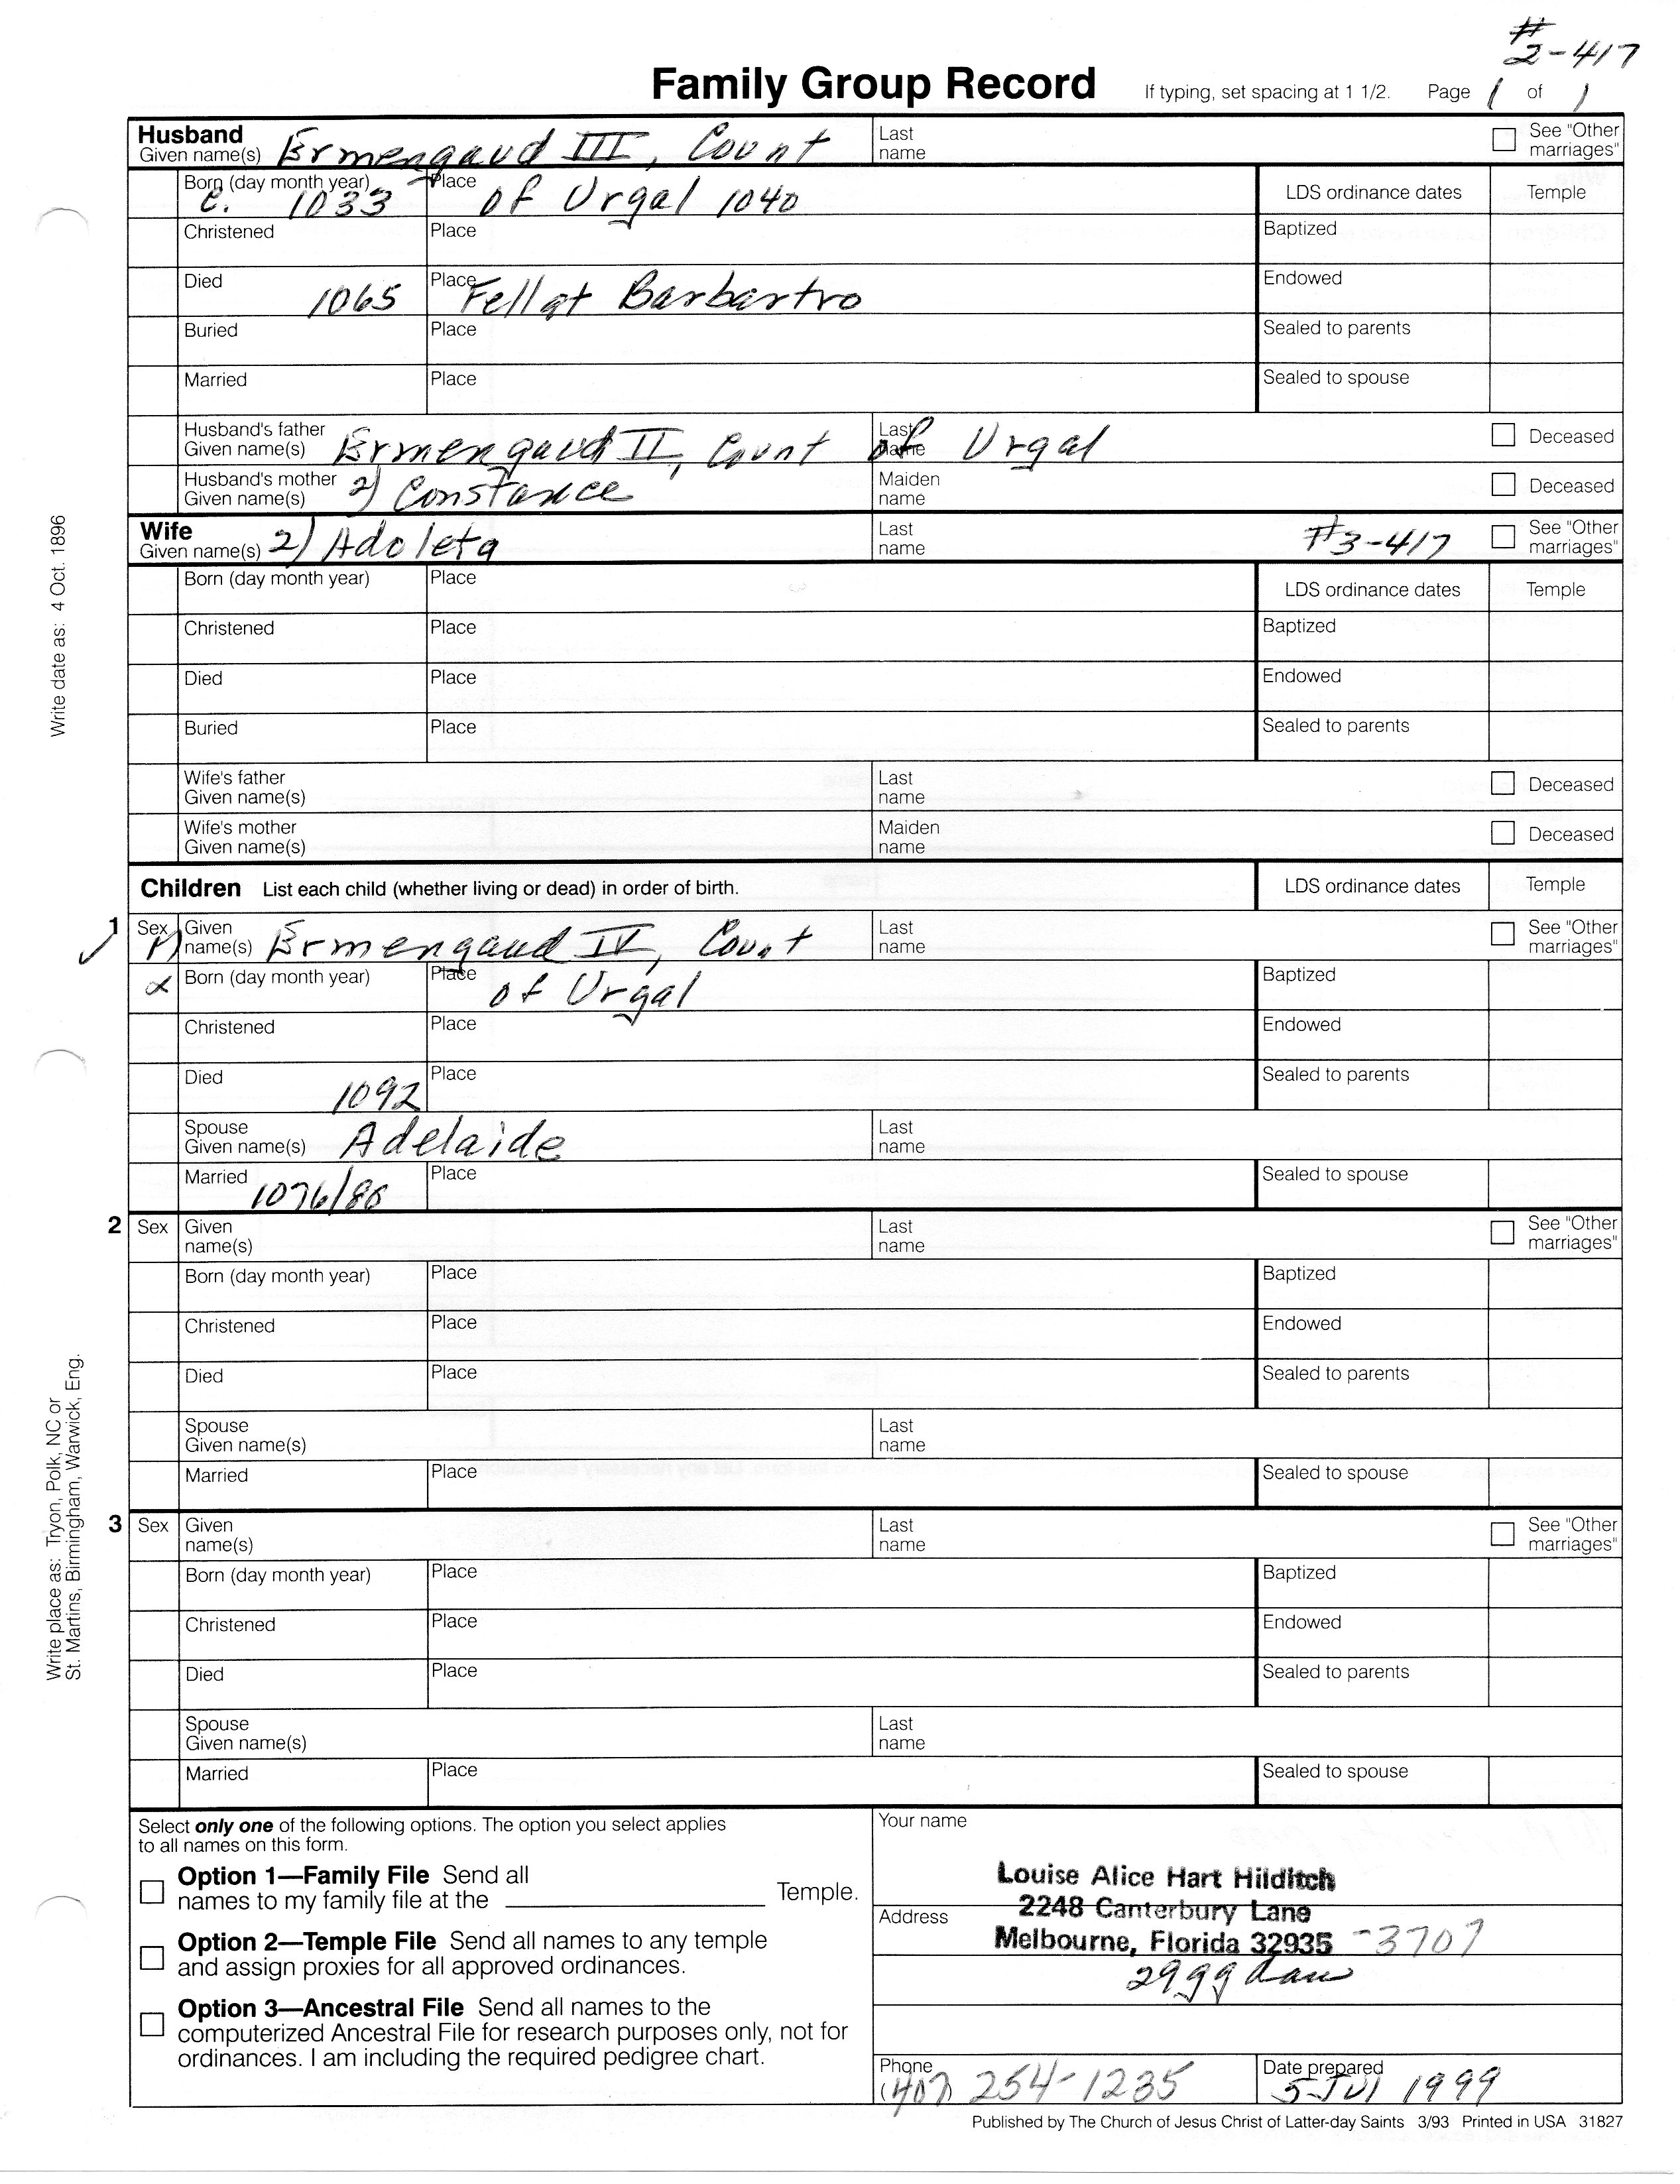 #
2-417
Family Group Record If typing, set spacing at 1 1/2. Page 1 of 1
Husband Given name(s) Ermengaud III, Count Last name See "Other marriages"
Born (day month year) c. 1033 Place of Urgal 1040 LDS ordinance dates Temple
Christened Place Baptized
Died 1065 Place Fell at Barbartro Endowed
Buried Place Sealed to parents
Married Place Sealed to spouse
Husband's father Given name(s) Ermengaud II, Count Last name of Urgal Deceased
Husband's mother Given name(s) 2) Constance Maiden name Deceased
Wife Given name(s) 2) Adoleta Last name #3-417 See "Other marriages"
Born (day month year) Place LDS ordinance dates Temple
Christened Place Baptized
Died Place Endowed
Buried Place Sealed to parents
Wife's father Given name(s) Last name Deceased
Wife's mother Given name(s) Maiden name Deceased
Children List each child (whether living or dead) in order of birth. LDS ordinance dates Temple
1 Sex M Given name(s) Ermengaud IV, Count Last name See "Other marriages"
Born (day month year) Place of Urgal Baptized
Christened Place Endowed
Died 1092 Place Sealed to parents
Spouse Given name(s) Adelaide Last name
Married 1076/80 Place Sealed to spouse
2 Sex Given name(s) Last name See "Other marriages"
Born (day month year) Place Baptized
Christened Place Endowed
Died Place Sealed to parents
Spouse Given name(s) Last name
Married Place Sealed to spouse
3 Sex Given name(s) Last name See "Other marriages"
Born (day month year) Place Baptized
Christened Place Endowed
Died Place Sealed to parents
Spouse Given name(s) Last name
Married Place Sealed to spouse
Write date as: 4 Oct. 1896
Write place as: Tryon, Polk, NC or
St. Martins, Birmingham, Warwick, Eng.
Select only one of the following options. The option you select applies
to all names on this form.
Option 1—Family File Send all
names to my family file at the Temple.
Option 2—Temple File Send all names to any temple
and assign proxies for all approved ordinances.
Option 3—Ancestral File Send all names to the
computerized Ancestral File for research purposes only, not for
ordinances. I am including the required pedigree chart.
Your name
Louise Alice Hart Hilditch
Address 2248 Canterbury Lane
Melbourne, Florida 32935 -3707
29gg
Phone (407) 254-1235 Date prepared 5 Jul 1999
Published by The Church of Jesus Christ of Latter-day Saints 3/93 Printed in USA 31827